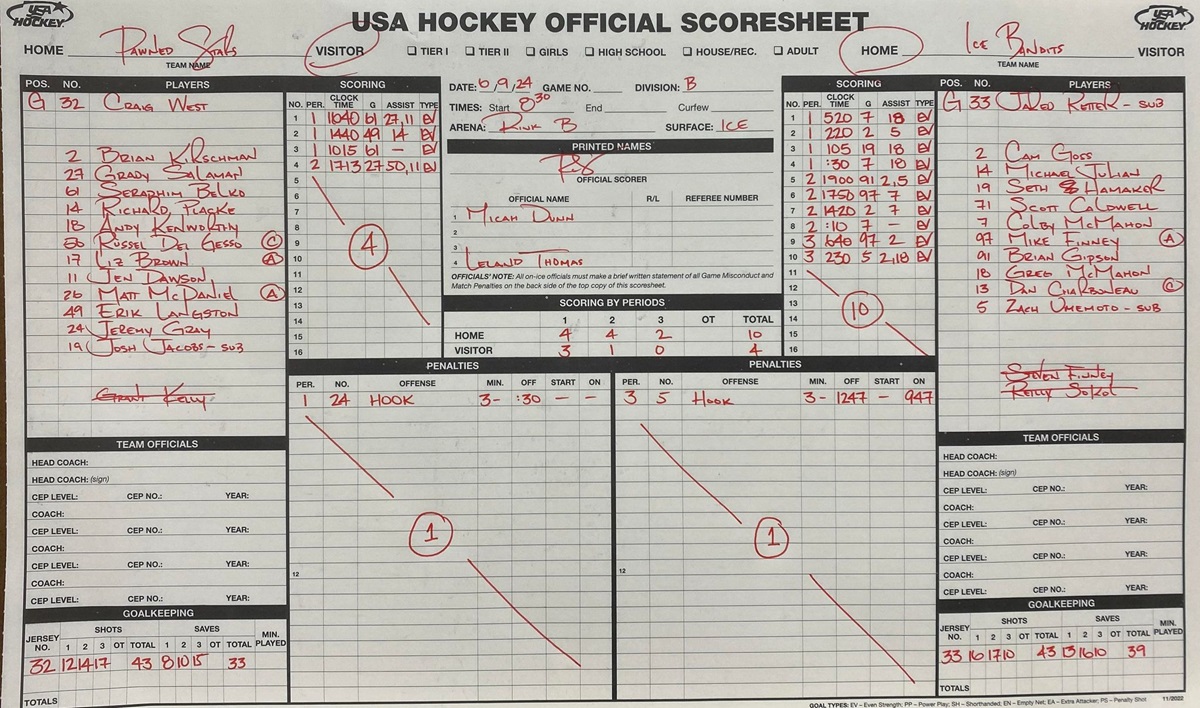 USA HOCKEY
USA HOCKEY OFFICIAL SCORESHEET
USA HOCKEY
HOME Pawned Stars VISITOR ☐ TIER I ☐ TIER II ☐ GIRLS ☐ HIGH SCHOOL ☐ HOUSE/REC. ☐ ADULT HOME Ice Bandits VISITOR
TEAM NAME
TEAM NAME
POS. NO. PLAYERS
G 32 Craig West
2 Brian Kirschman
27 Grady Salaman
61 Seraphim Belko
14 Richard Placke
18 Andy Kenworthy
56 Russel Del Gesso C
17 Liz Brown A
11 Jen Dawson
26 Matt McDaniel A
49 Erik Langston
24 Jeremy Gray
19 Josh Jacobs - sub
Grant Kelly
SCORING
NO. PER. CLOCK TIME G ASSIST TYPE
1 1 1640 61 27,11 EV
2 1 1440 49 14 EV
3 1 1015 61 - EV
4 2 1713 27 50,11 EV
5
6
7
8
9
10
11
12
13
14
15
16
4
DATE: 6/9/24 GAME NO. DIVISION: B
TIMES: Start 830 End Curfew
ARENA: Rink B SURFACE: ICE
PRINTED NAMES
OFFICIAL SCORER
OFFICIAL NAME R/L REFEREE NUMBER
1 Micah Dunn
2
3
4 Leland Thomas
OFFICIALS' NOTE: All on-ice officials must make a brief written statement of all Game Misconduct and
Match Penalties on the back side of the top copy of this scoresheet.
SCORING BY PERIODS
1 2 3 OT TOTAL
HOME 4 4 2 10
VISITOR 3 1 0 4
SCORING
NO. PER. CLOCK TIME G ASSIST TYPE
1 1 520 7 18 EV
2 1 220 2 5 EV
3 1 105 19 18 EV
4 1 :30 7 18 EV
5 2 1900 91 2,5 EV
6 2 1750 97 7 EV
7 2 1420 2 7 EV
8 2 :10 7 - EV
9 3 1640 97 2 EV
10 3 230 5 2,18 EV
11
12
13
14
15
16
10
POS. NO. PLAYERS
G 33 Jared Reiter - sub
2 Cam Goss
14 Michael Julian
19 Seth Hamaker
71 Scott Caldwell
7 Colby McMahon
97 Mike Finney A
91 Brian Gipson
18 Greg McMahon
13 Dan Charboneau C
5 Zach Umemoto - sub
Steven Finney
Reilly Sokol
PENALTIES
PER. NO. OFFENSE MIN. OFF START ON
1 24 HOOK 3- :30 - -
12
1
PENALTIES
PER. NO. OFFENSE MIN. OFF START ON
3 5 Hook 3- 1247 - 947
12
1
TEAM OFFICIALS
HEAD COACH:
HEAD COACH: (sign)
CEP LEVEL: CEP NO.: YEAR:
COACH:
CEP LEVEL: CEP NO.: YEAR:
COACH:
CEP LEVEL: CEP NO.: YEAR:
COACH:
CEP LEVEL: CEP NO.: YEAR:
GOALKEEPING
JERSEY NO. SHOTS 1 2 3 OT TOTAL SAVES 1 2 3 OT TOTAL MIN. PLAYED
32 12 14 17 43 8 10 15 33
TOTALS
TEAM OFFICIALS
HEAD COACH:
HEAD COACH: (sign)
CEP LEVEL: CEP NO.: YEAR:
COACH:
CEP LEVEL: CEP NO.: YEAR:
COACH:
CEP LEVEL: CEP NO.: YEAR:
COACH:
CEP LEVEL: CEP NO.: YEAR:
GOALKEEPING
JERSEY NO. SHOTS 1 2 3 OT TOTAL SAVES 1 2 3 OT TOTAL MIN. PLAYED
33 16 17 10 43 13 16 10 39
TOTALS
GOAL TYPES: EV – Even Strength; PP – Power Play; SH – Shorthanded; EN – Empty Net; EA – Extra Attacker; PS – Penalty Shot 11/2022